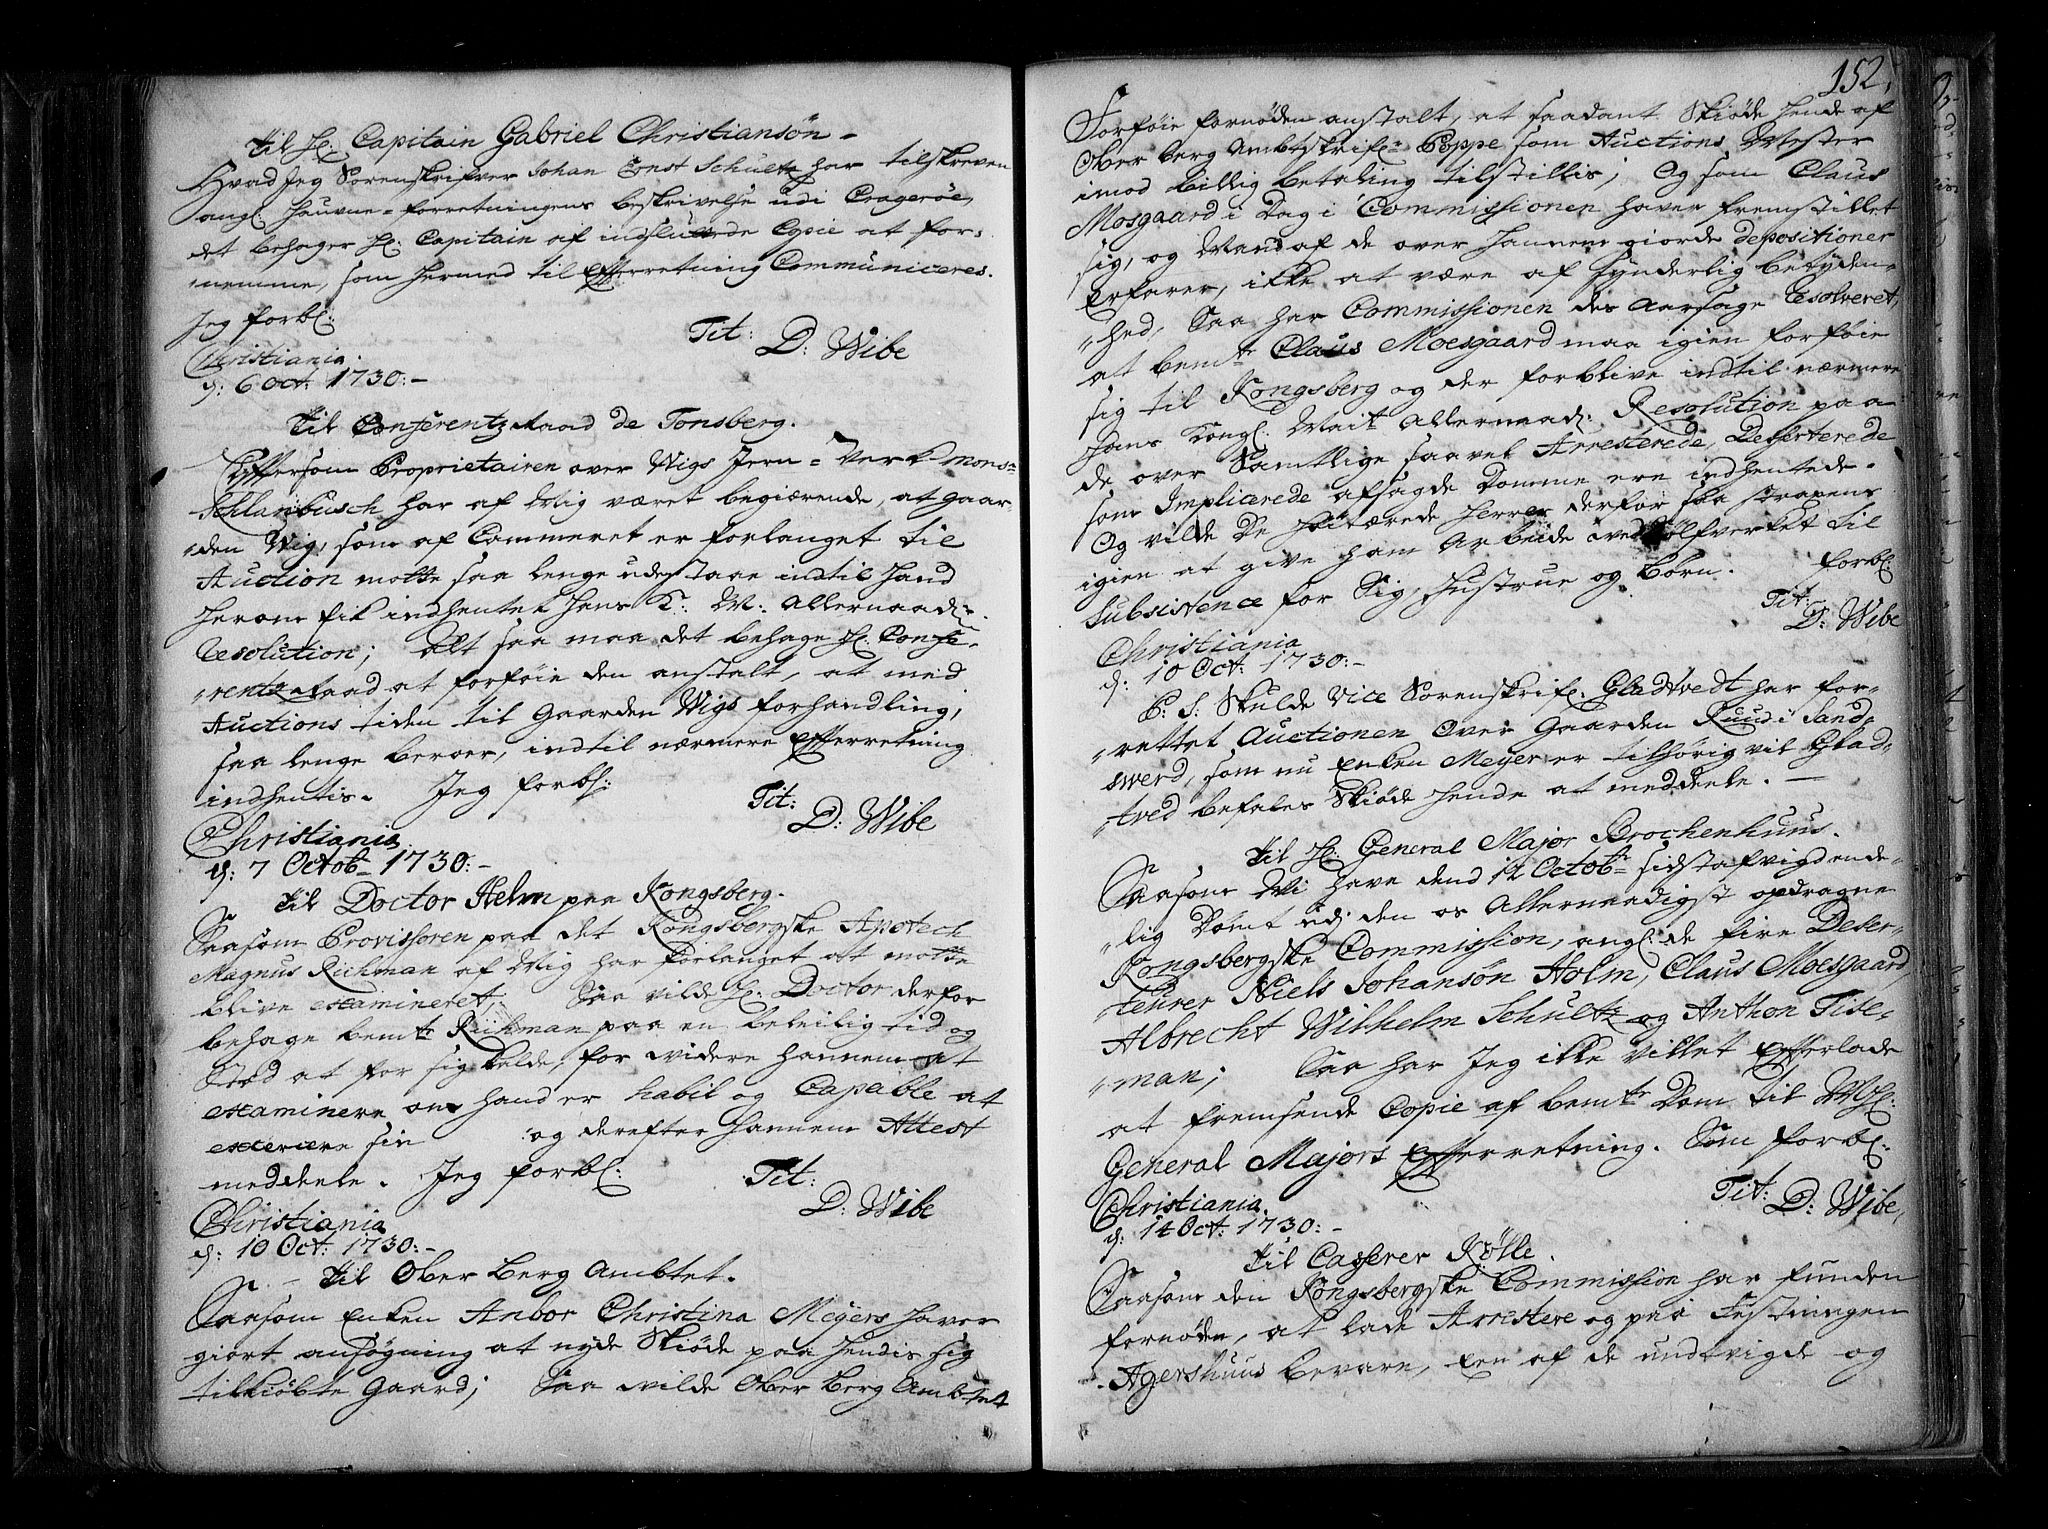 Til Hr: Capitain Gabriel Christiansøn.
Hvad Jeg Sorenskrifver Johan Ernst Schultz har tilskreven
angl: Hauvne-forretningens beskrivelse udi Cragerøe,
det behager Hr: Capitain af indslutede Copie at for-
nemme, som hermed til Efterretning Communiceres.
Jeg forbl:
Tit: D: Wibe
Christiania.
d: 6 Oct: 1730:-
Til Conferentz Raad de Tonsberg.
Eftersom Proprietairen over Wigs Jern-Verk Mons:r
Schlanbusch har af Mig været begiærende, at Gaar-
den Wig, som af Cammeret er forlanget til
Auction motte saa lenge udestaae indtil Hand
herom fik indhentet Hans K: M: Allernaad:ste
Resolution; Alt saa maa det behage Hr: Confe-
rentz Raad at forføie den anstalt, at med
Auctions tiden til Gaarden Wigs forhandling,
saa lenge beroer, indtil nærmere Efterretning
indhentis. Jeg forbl:
Tit:
D: Wibe
Christiania
d: 7 Octobr 1730:-
Til Doctor Helm paa Kongsberg.
Saasom Provissoren paa det Kongsbergske Apotech
Magnus Richman af Mig har forlanget at motte
blive examineret; Saa vilde Hr: Doctor derfor
behage bemte Richman paa en beleilig tid og
Sted at for sig kalde, for widere hannem at
examinere om hand er habil og Capable at
exercere sin og derefter hannem Attest
meddeele. Jeg forbl:
Tit:
D: Wibe
Christiania
d: 10 Oct: 1730:-
Til Ober Berg Ambtet.
Saasom Enken Anbor Christina Meyers haver
giort ansøgning at nyde Skiøde paa hendis sig
tilkiøbte Gaard; Saa wilde Ober Berg Ambtet
152.
Forføie fornøden anstalt, at saadant Skiøde hende af
Ober Berg Ambtskrifr Poppe som Auctions Mester
imod billig betaling tilstillis; Og som Claus
Mosgaard i Dag i Commissionen haver fremstillet
sig, og Mand af de over hannem giorde depositioner
Erfarer, ikke at være af synderlig betyden-
hed, Saa har Commissionen des Aarsage Resolveret,
at bemte Claus Moesgaard maa igien forføie
sig til Kongsberg og der forblive indtil nærmere
Hans Kongl: Mait Allernaad: Resolution paa
de over Samtlige saavel Arresterede, Deserterede
som Implicerede afsagde Domme ere indhentede.
Og vilde De Høitærede Herrer derfor saa strax
igien at give ham Arbeide ved Sølfverket til
Subsistence for Sig, Hustrue og Børn. forbl:
Tit:
D: Wibe
Christiania
d: 10 Oct: 1730:-
P: S: Skulde Vice Sorenskrifr: Gladtvedt har for-
rettet Auctionen over Gaarden Ruud i Sand-
sverd, som nu Enken Meyer er tilhørig vil Glad-
tved befales Skiøde hende at meddeele.
Til Hr: General Major Brochenhuus.
Saasom Wi have dend 12 Octobr sidst afvigd ende-
lig Dømt udj den os Allernaadigst opdragne
Kongsbergske Commission, angl: de fire Deser-
teurer Niels Johansøn Holm, Claus Moesgaard,
Albrecht Wilhelm Schultz og Anthon Tise-
man; Saa har Jeg ikke villet Efterlade
at fremsende Copie af bemte Dom til Hr:
General Majors Efterretning. Som forbl:
Tit: D: Wibe,
Christiania.
d: 14 Oct: 1730:-
Til Casserer Kølle.
Saasom den Kongsbergske Commission har funden
fornøden, at lade Arrestere og paa Festningen
Agershuus bevare, Een af de undvigde og